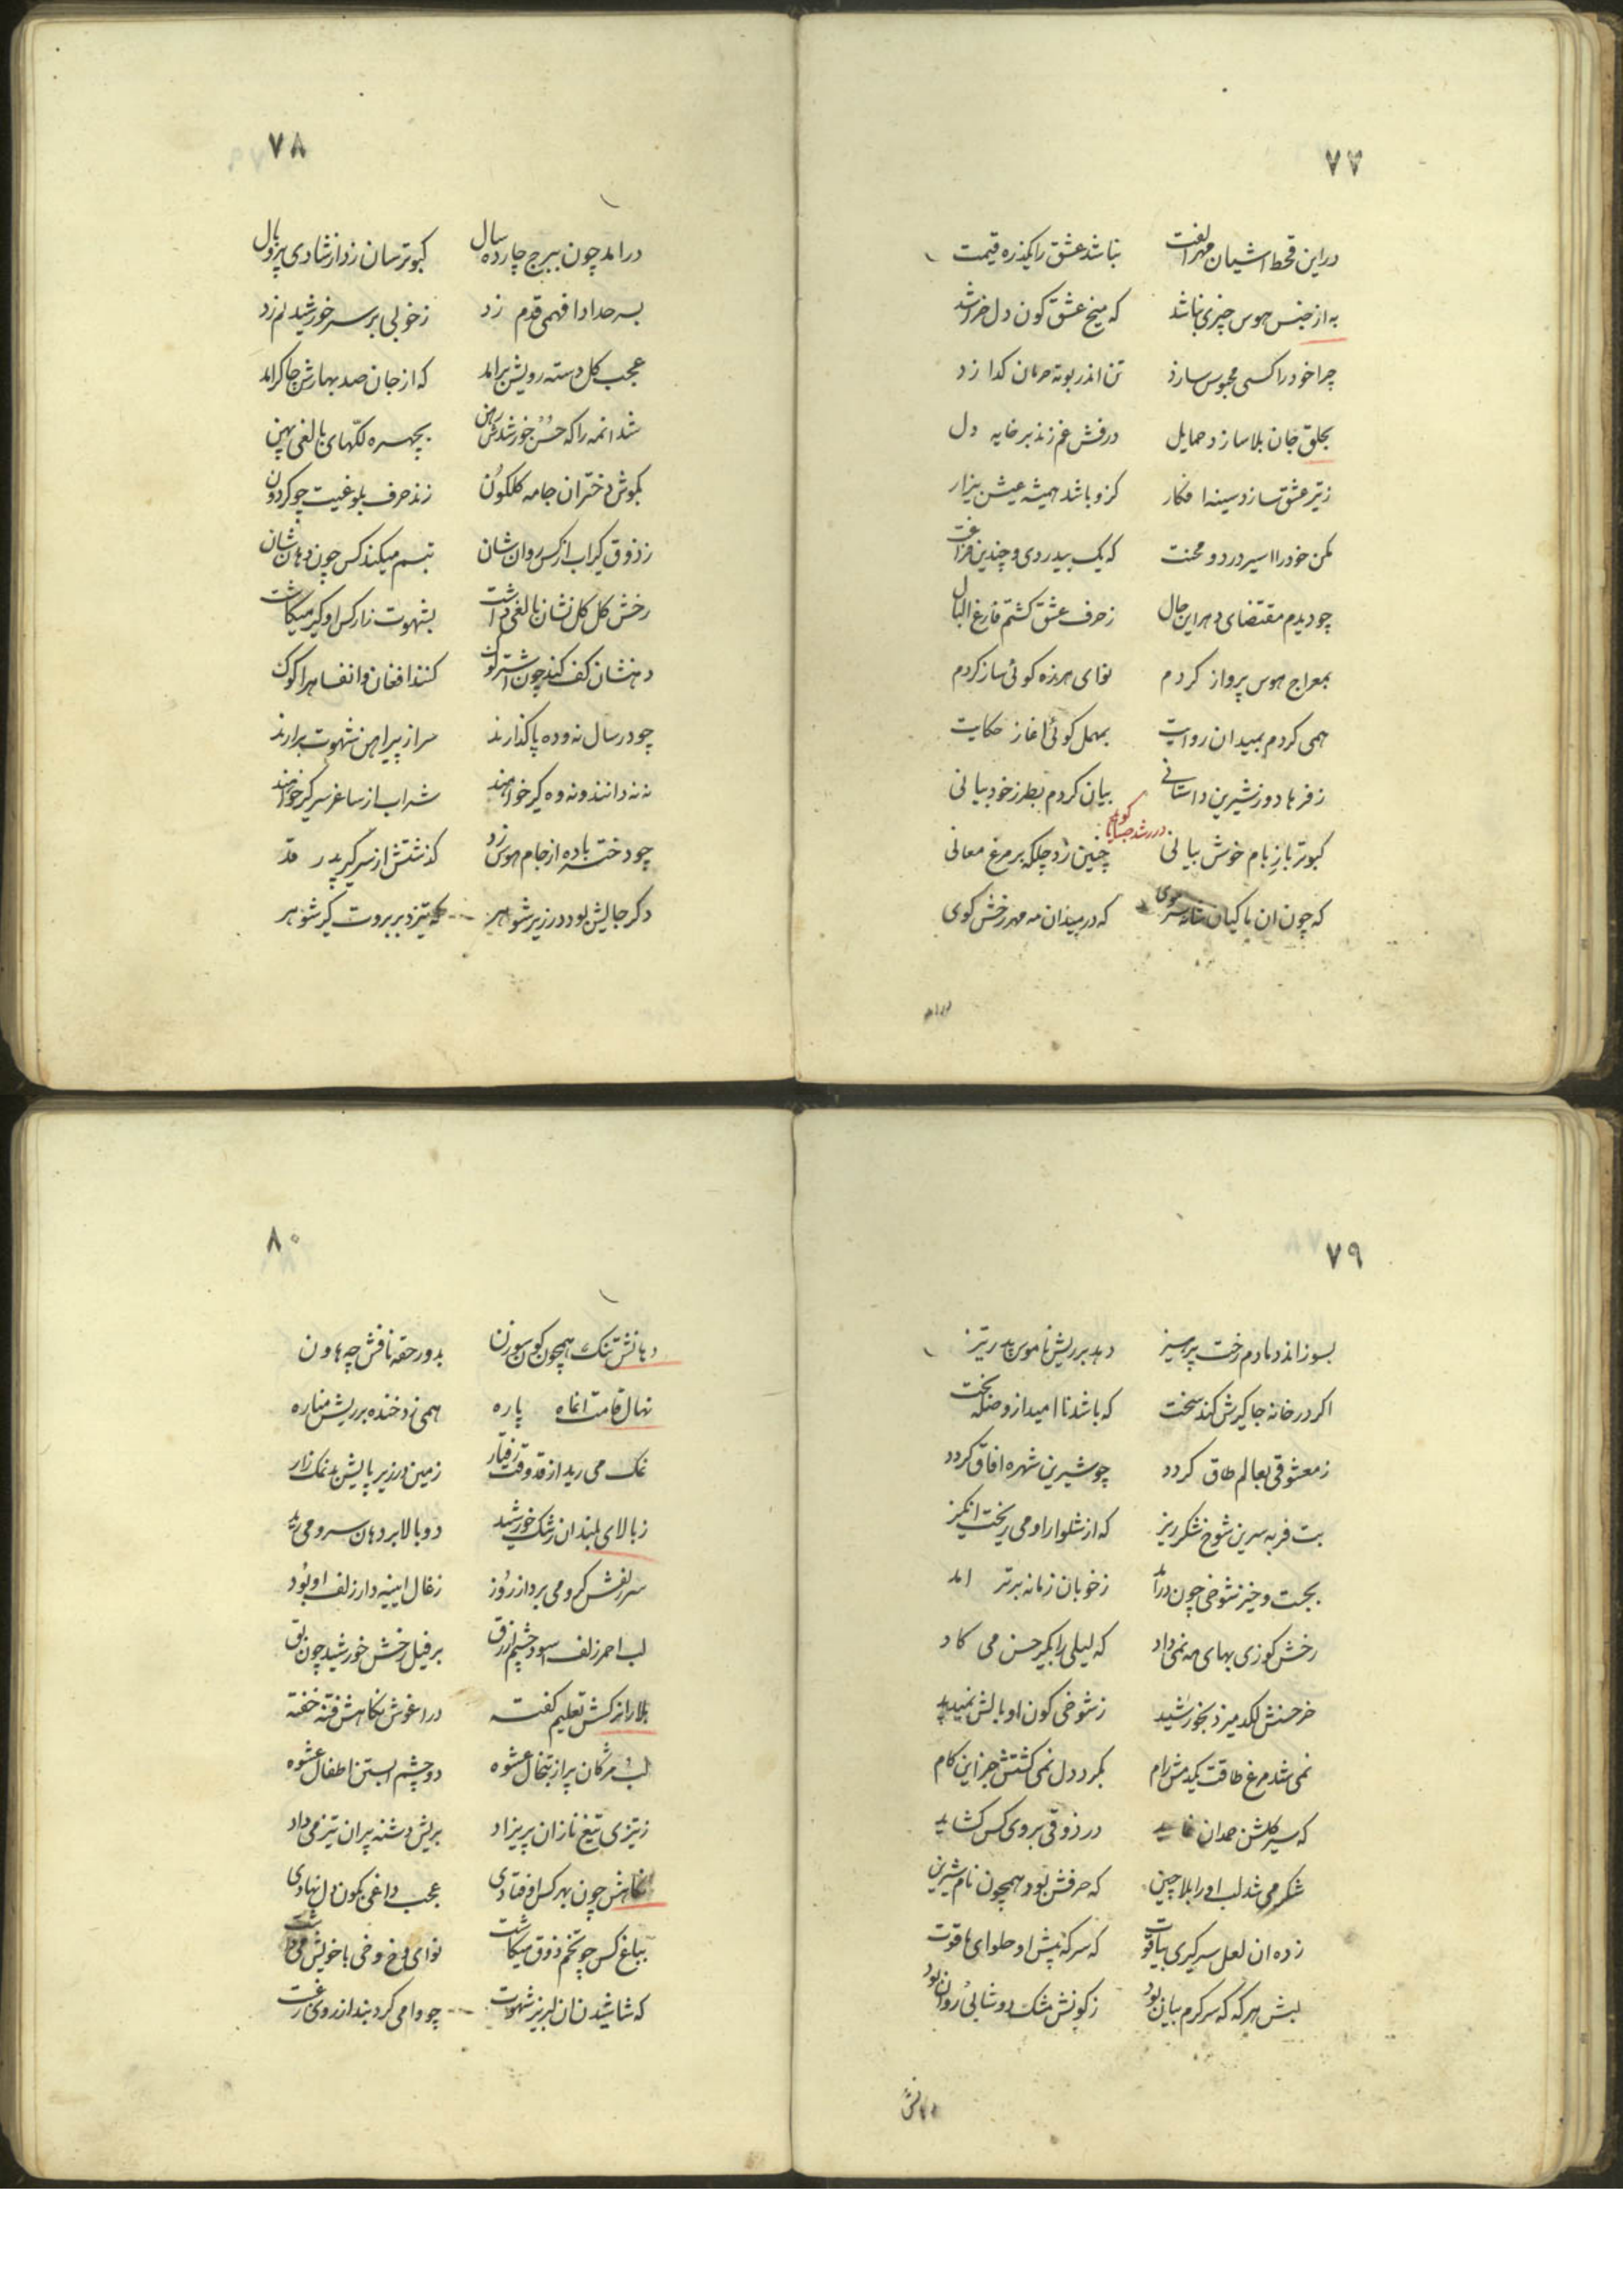 ۷۷
دراین قحط اشیان مهر الفت نباشد عشق را یکذره قیمت
به از جنس هوس چیزی نباشد که میخ عشق کون دل خراشد
چرا خود را کسی محبوس سازد تن اندر بوته حرمان کدازد
بحلق جان بلا سازد حمایل درفش غم زند بر خایه دل
ز تیر عشق سازد سینه افکار کزو باشد همیشه عیش بیزار
مکن خود را اسیر درد و محنت که یک بیدردی و چندین فراغت
چو دیدم مقتضای دهر این حال ز حرف عشق کشتم فارغ البال
بمعراج هوس پرواز کردم نوای هرزه کوئی ساز کردم
همی کردم بمیدان روایت بمهمل کوئی اغاز حکایت
ز فرهاد و ز شیرین داستانی بیان کردم بطرز خود بیانی
کبوتر باز بام خوش بیانی چنین زد چلکه بر مرغ معانی
که چون ان پاکیان سوی که در میدان مه مهر رخش کوی
درامد
۷۸
درامد چون ببرج چارده سال کبوترسان زد از شادی پر و بال
بسر حد ادا فهمی قدم زد ز خوبی بر سر خورشید نم زد
عجب کل دسته رویش برامد که از جان صد بهارش چاکر امد
شد انمه را که حسن خورشید بچهره لکهای بالغی پهن
بکوش دختران جامه کلکون زند حرف بلوغیت چو کردون
ز ذوق کیر اب از کس روان شان تبسم میکند کس چون دهان شان
رخش کل کل نشان بالغی داشت بشهوت زار کس او کیر میکاشت
دهنشان کف کند چون اشتر لوک کنند افغان و انفاس را کوک
چو در سال نه و ده پا کذارند سر از پیراهن شهوت برارند
نه نه دانند و نه ده کیر خواهند شراب از ساغر سر کیر خواهند
چو دختر باده از جام هوس زد کذشتش از سر کیر پدر قد
دکر جایش بود در زیر شوهر که تیزد بر بروت کیر شوهر
۷۹
بسوزاند دمادم رخت پرهیز دهد بر ریش ناموس پدر تیز
اکر در خانه جا کیرش کند سخت که باشد نا امید از وصله بخت
ز معشوقی بعالم طاق کردد چو شیرین شهره افاق کردد
بت فربه سرین شوخ شکر ریز که از شلوار او می ریخت انکیز
بجست و خیز شوخی چون درامد ز خوبان زمانه برتر امد
رخش کوزی بهای مه نمی داد که لیلی را بکیر حسن می کاد
خر حسنش لکد میزد بخورشید ز شوخی کون او بالش نمیدید
نمی شد مرغ طاقت یکدمش رام بکرد دل نمی کشتش جز این کام
که سیر کلشن همدان نماید در ذوقی بروی کس کشاید
شکر می شد لب او را بلا چین که حرفش بود همچون نام شیرین
زده ان لعل سر کیری بیاقوت که سرکه پیش او حلوای یاقوت
لبش هر که که سرکرم بیان بود ز کونش مشک دوشابی روان بود
دهانش
۸۰
دهانش تنک همچون کون سوزن بدور حقه نافش چه هاون
نهال قامت انماه پاره همی زد خنده بر ریش مناره
نمک می رید از قد وقت رفتار زمین در زیر پایش بد نمک زار
ز بالای بلند ان رشک خورشید دو بالا بر دهان سرو می رید
سر زلفش کرو می برد از روز زغال ایینه دار زلف او بود
لب احمر زلف اسود چشم ازرق بر فیل رخش خورشید چون بق
بلا را نرکسش تعلیم کفته در اغوش نکاهش فتنه خفته
لب مژکان پر از تبخال عشوه دو چشم ابستن اطفال عشوه
ز تیزی تیغ ناز ان پریزاد بریش دشنه پیران تیز می داد
نکاهش چون بهر کس اوفتادی عجب داغی بکون دل نهادی
بباغ کس چو تخم ذوق میکاشت نوای وخ وخی با خویش می داشت
که شاشیدن ان لبریز شهوت چو وا می کرد بند از روی رغبت